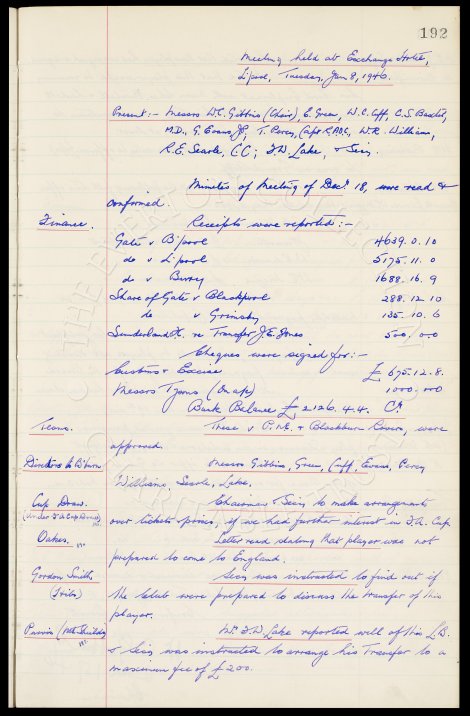 192
Meeting held at Exchange Hotel,
L'pool, Tuesday, Jan 8, 1946.
Present:- Messrs W.C. Gibbins (Chair), E. Green, W.C. Cuff, C.S. Baxter,
M.D., G. Evans JP, T. Percy, Capt R.A.M.C., W.R. Williams,
R.E. Searle, C.C; F.W. Lake, & Secy.
Minutes of Meeting of Decr. 18, were read &
confirmed.
Finance. Receipts were reported:-
Gate v B'pool 4639.0.10
do v L'pool 5175.11.0
do v Bury 1688.16.9
Share of Gate v Blackpool 288.12.10
do v Grimsby 135.10.6
Sunderland F.C. re Transfer J.E. Jones 500.0.0
Cheques were signed for:-
Customs & Excise £ 675.12.8.
Messrs Tysons (On a/c) 1000.0.0
Bank Balance £2,126.4.4. Cr.
Teams. These v P.N.E. & Blackburn Rovers, were
approved.
Directors to B'burn Messrs Gibbins, Green, Cuff, Evans, Percy
Williams, Searle, Lake.
Cup Draw. Chairman & Secy to make arrangements
over tickets & prices, if we had further interest in F.A. Cup.
Oakes. Letter read stating that player was not
prepared to come to England.
Gordon Smith Secy was instructed to find out if
(Hibs) the Club were prepared to discuss the transfer of this
player.
Mr. F.W. Lake reported well of this L.B.
& Secy was instructed to arrange his Transfer to a
maximum fee of £200.